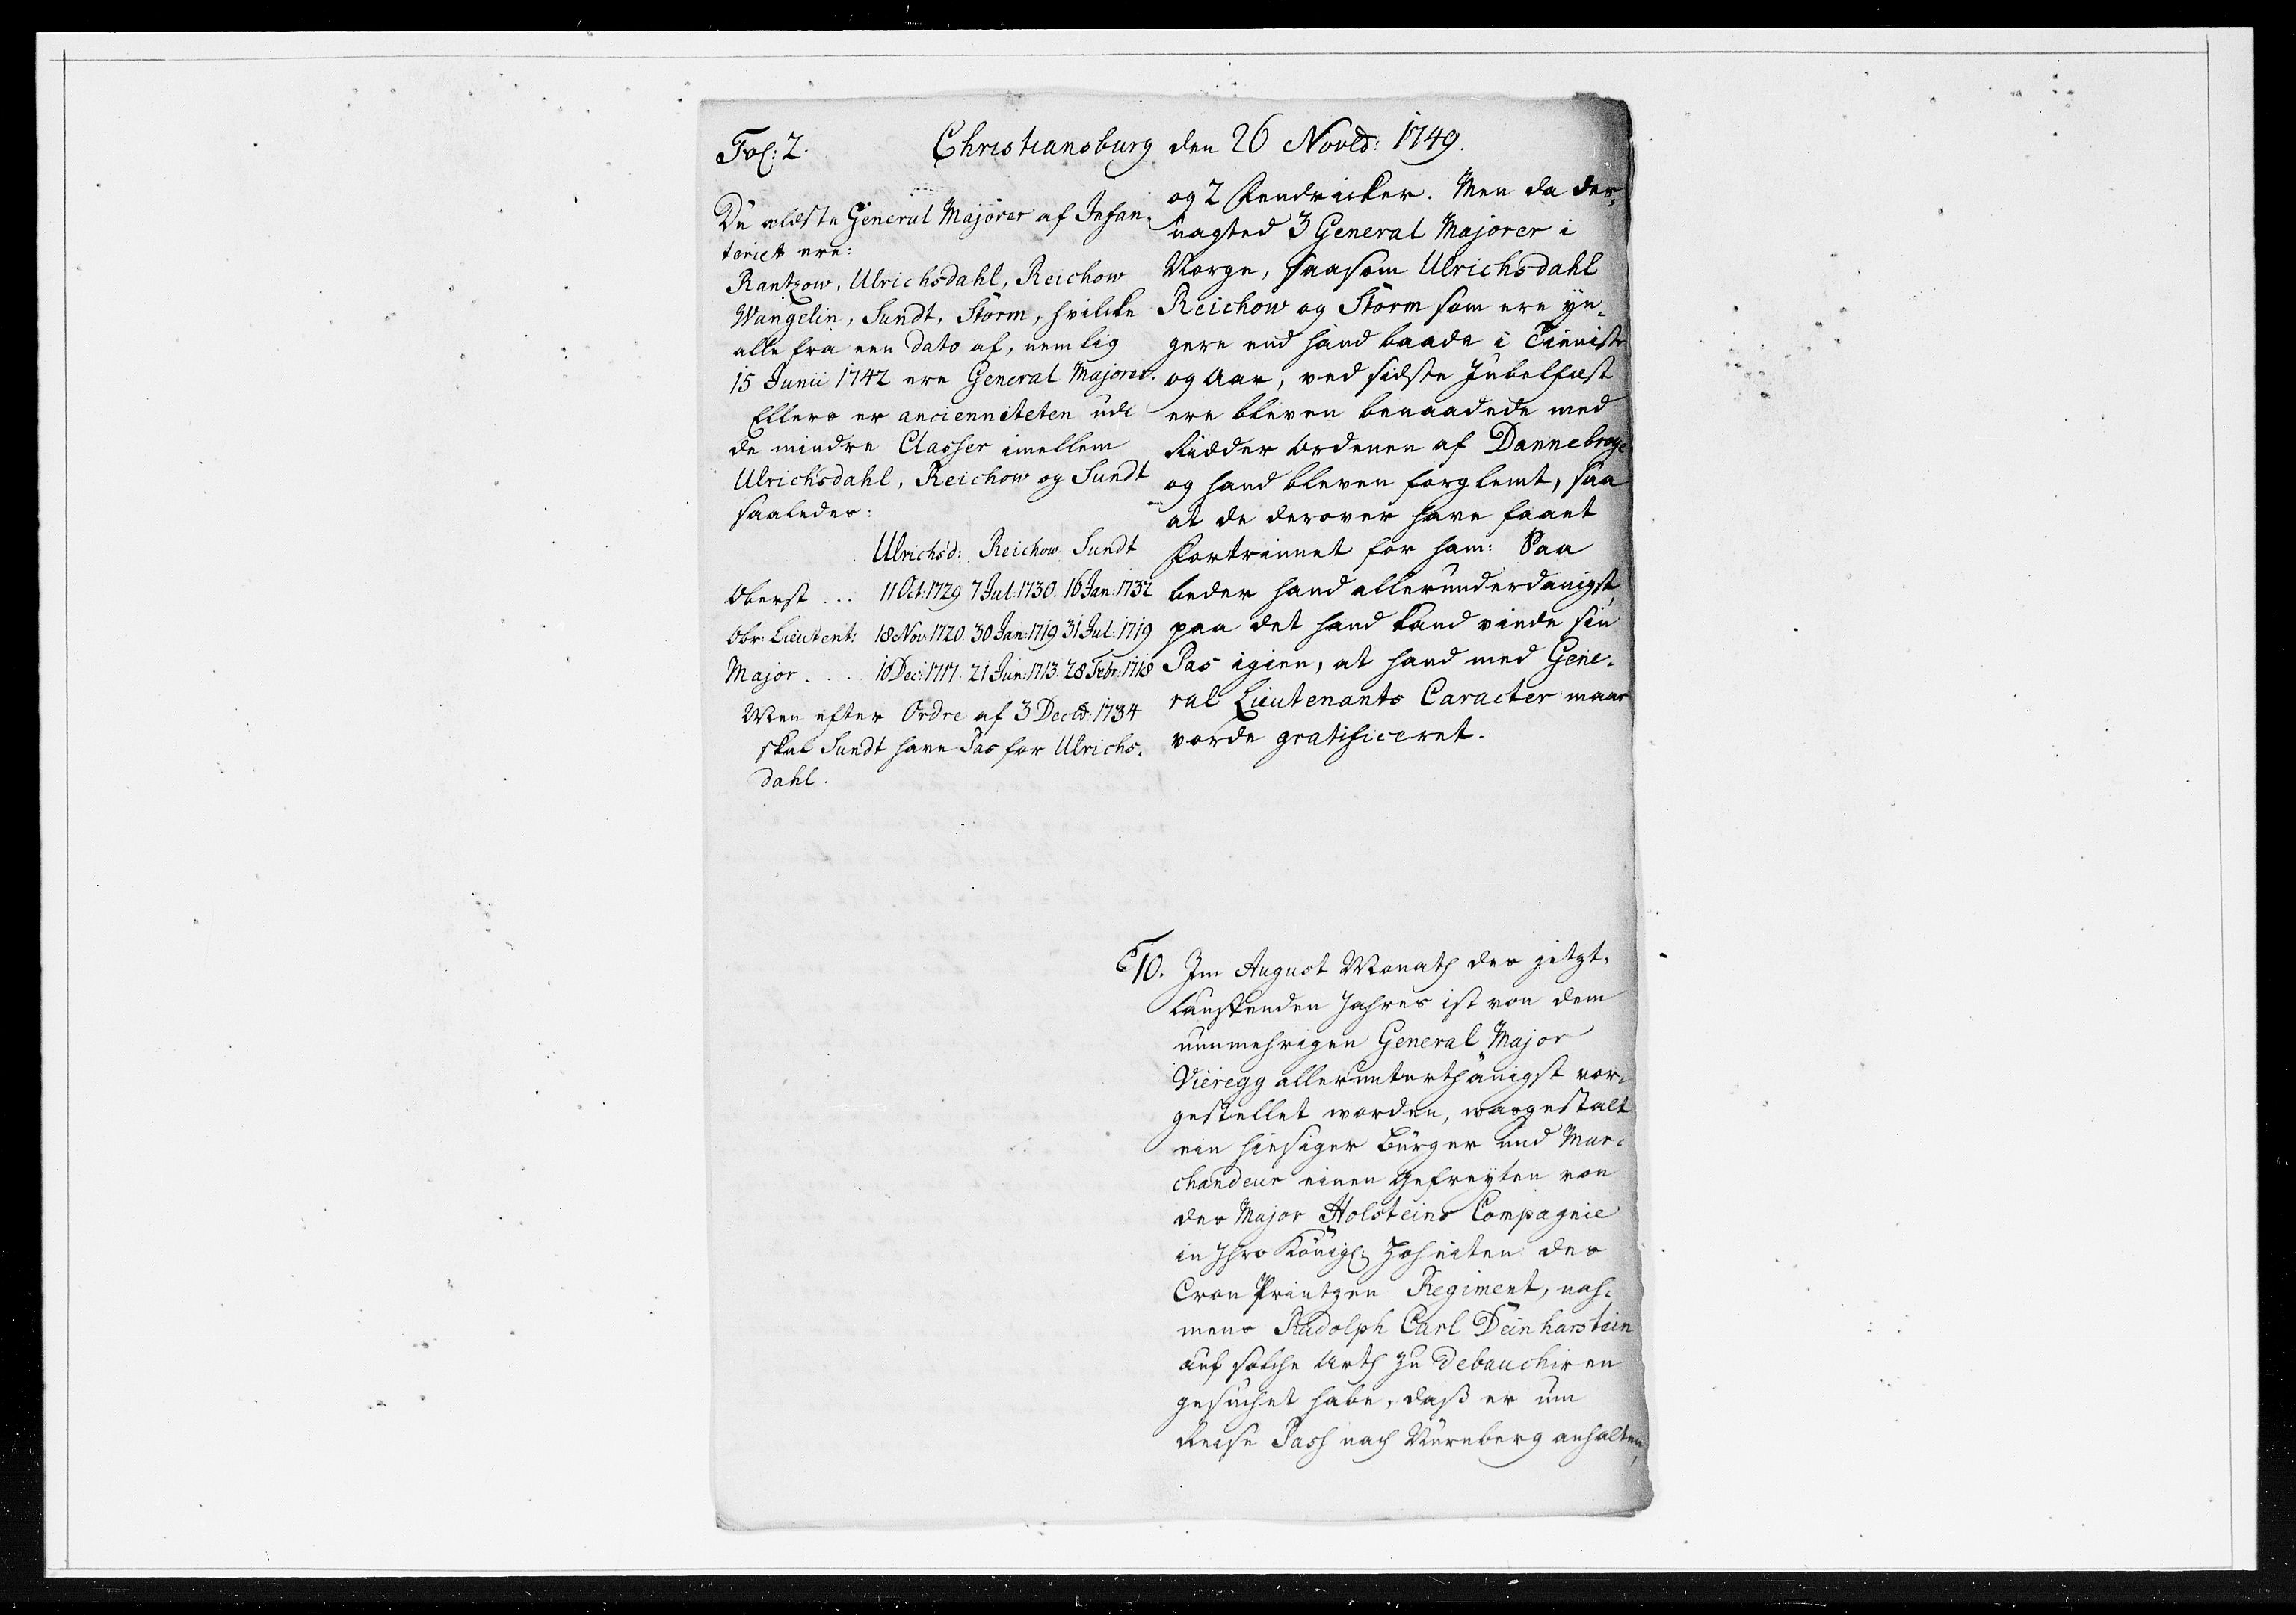 Fol: 2. Christiansburg den 26 Novbr: 1749.
De ældste General Majorer af Infan-
teriet ere:
Rantzow, Ulrichsdahl, Reichow
Wangelin, Sundt, Storm, hvilcke
alle fra een dato af, nemlig
15 Junii 1742 ere General Majorer.
Ellers er ancienniteten udi
de mindre Classer imellem
Ulrichsdahl, Reichow og Sundt
saaledes:
Ulrichsd: Reichow Sundt
Oberst ... 11 Oct: 1729 7 Jul: 1730. 16 Jan: 1732
Obr: Lieutent: 18 Nov: 1720. 30 Jan: 1719 31 Jul: 1719
Major .... 10 Dec: 1717. 21 Jun: 1713. 28 Febr: 1718
Men efter Ordre af 3 Decbr: 1734
skal Sundt have Pas for Ulrichs-
dahl.
og 2 Fendricker. Men da des-
uagted 3 General Majorer i
Norge, saasom Ulrichsdahl
Reichow og Storm som ere yn-
gere end hand baade i Tienniste
og Aar, ved sidste Jubelfæst
ere bleven benaadede med
Ridder Ordenen af Dannebroge
og hand bleven forglemt, saa
at de derover have faaet
Fortrinnet for ham: Saa
beder hand allerunderdanigst,
paa det hand kand vinde sin
Pas igien, at hand med Gene-
ral Lieutenants Caracter maae
vorde gratificeret.
10. Im August Monath des jetzt-
lauffenden Jahres ist von dem
nunmehrigen General Major
Vieregg allerunterthänigst vor-
gestellet worden, wasgestalt
ein hiesiger Bürger und Mar-
chandeur einen Gefreyten von
des Major Holsteins Compagnie
in Ihro Königl: Hoheiten des
Cron Printzen Regiment, nah-
mens Rudolph Carl Deinharstein
auf solche Arth zu debauchiren
gesuchet habe, daß er um
Reise Pass nach Nürnberg anhalten,